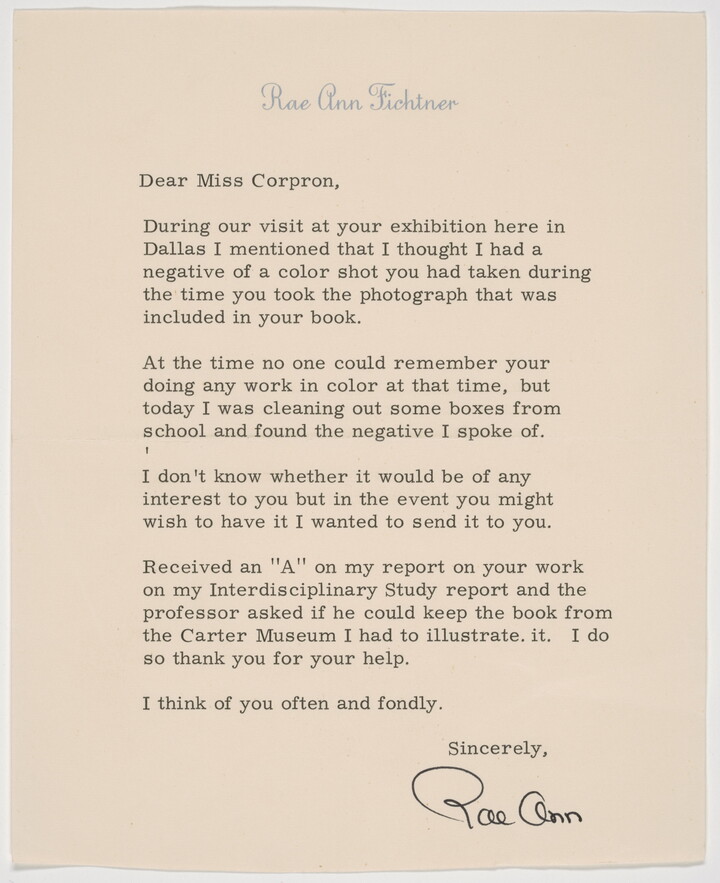 Rae Ann Fichtner
Dear Miss Corpron,
During our visit at your exhibition here in
Dallas I mentioned that I thought I had a
negative of a color shot you had taken during
the time you took the photograph that was
included in your book.
At the time no one could remember your
doing any work in color at that time, but
today I was cleaning out some boxes from
school and found the negative I spoke of.
'
I don't know whether it would be of any
interest to you but in the event you might
wish to have it I wanted to send it to you.
Received an "A" on my report on your work
on my Interdisciplinary Study report and the
professor asked if he could keep the book from
the Carter Museum I had to illustrate. it. I do
so thank you for your help.
I think of you often and fondly.
Sincerely,
Rae Ann